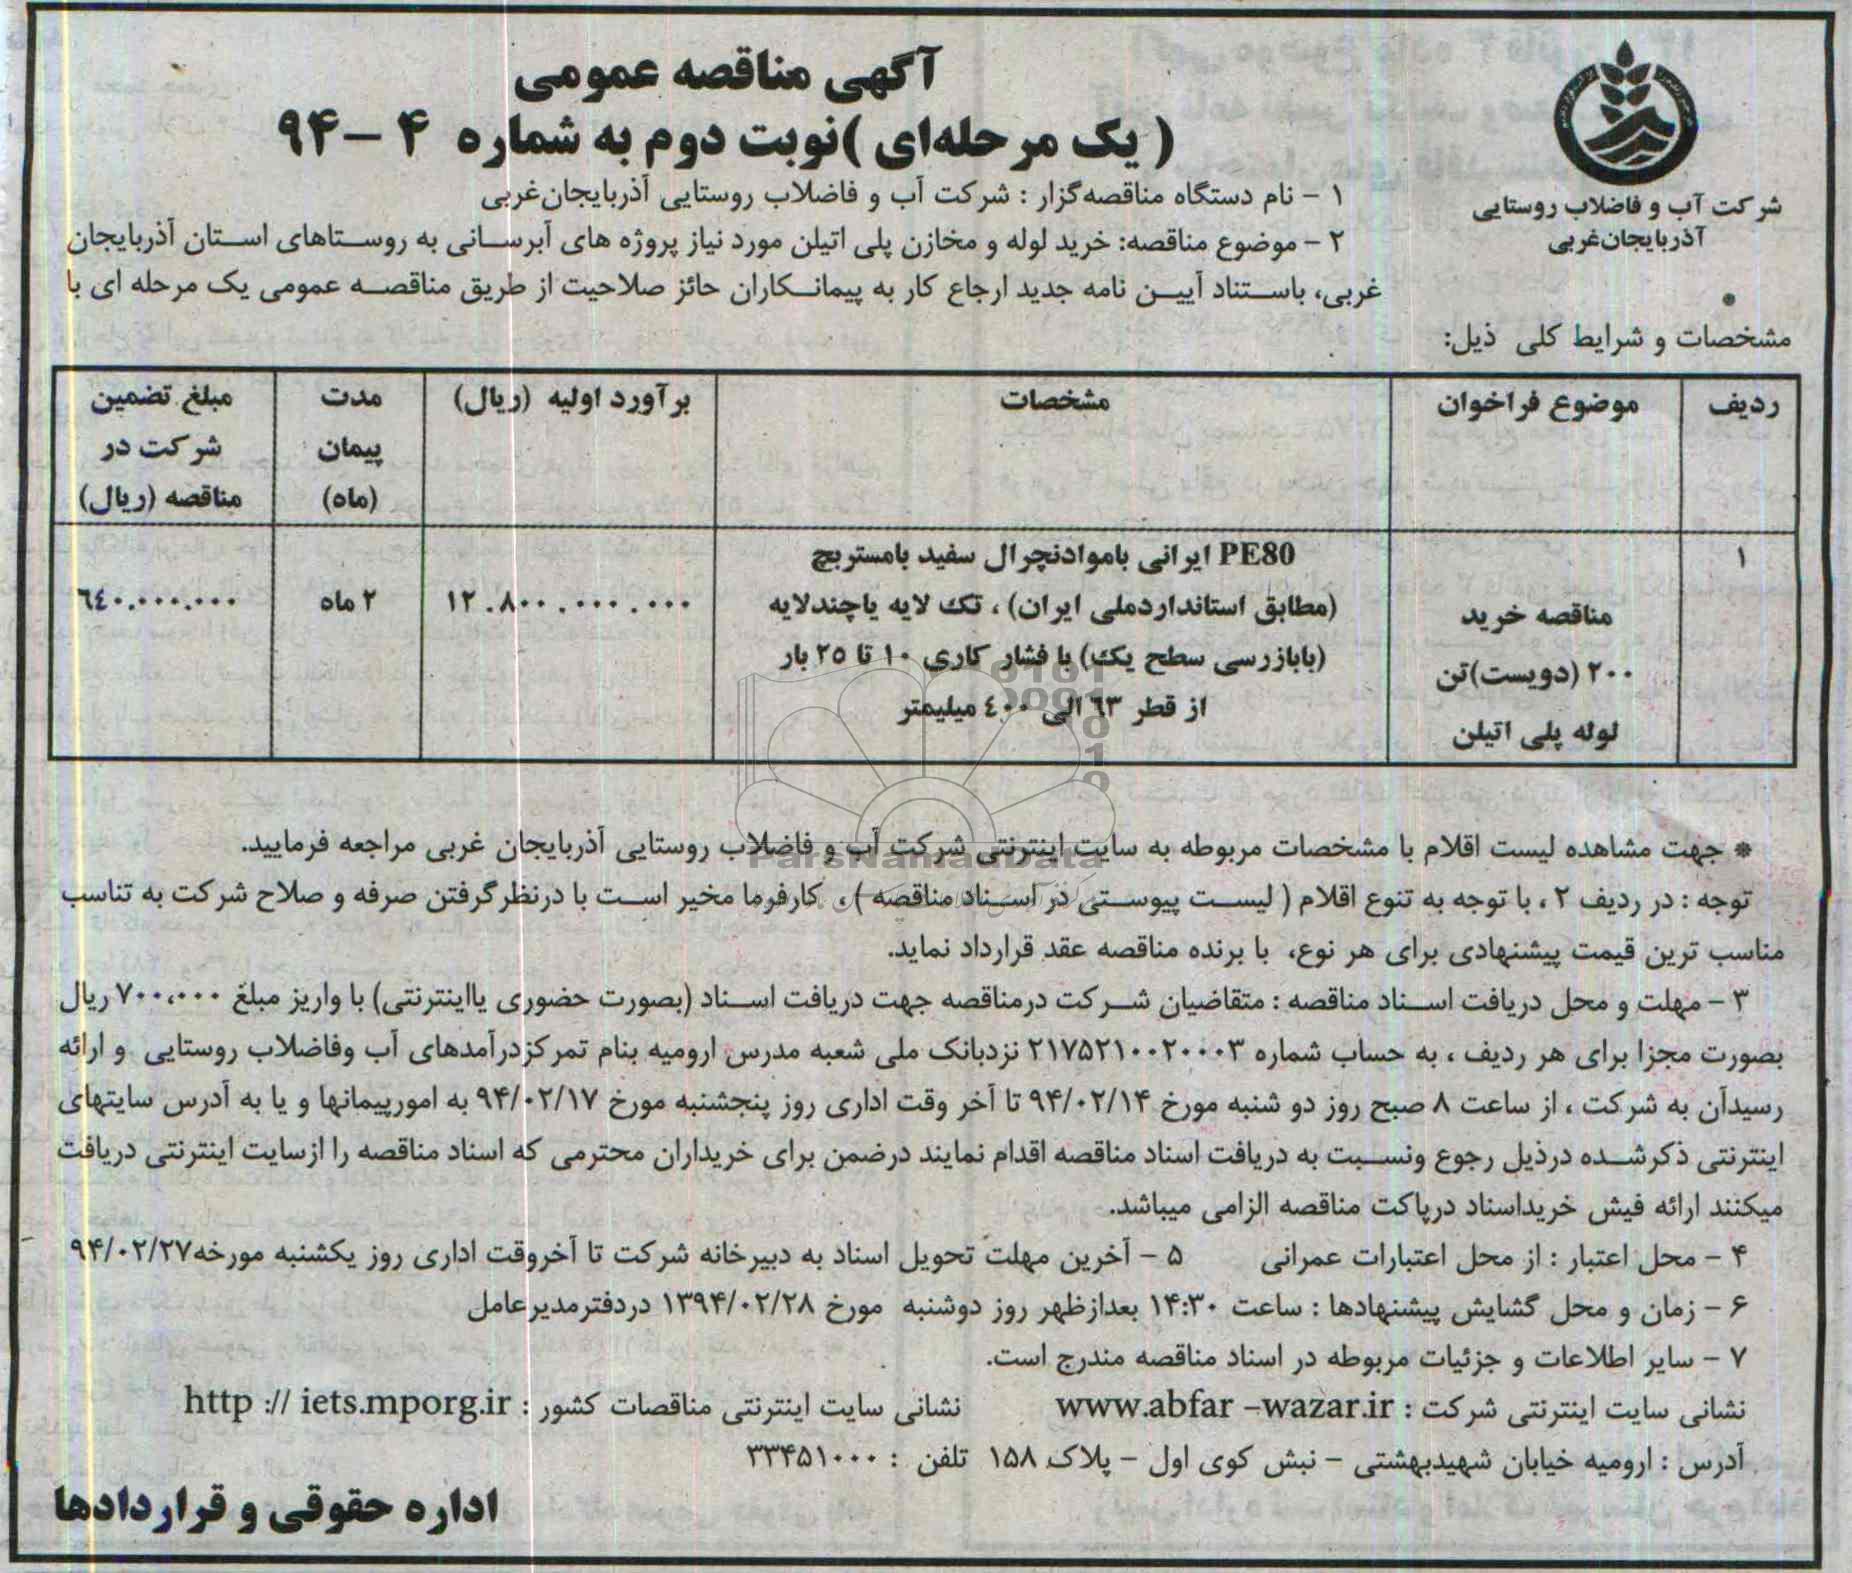 آگهی مناقصه عمومی
( یک مرحله‌ای )نوبت دوم به شماره ۴ -۹۴
شرکت آب و فاضلاب روستایی
آذربایجان‌غربی
۱ - نام دستگاه مناقصه‌گزار : شرکت آب و فاضلاب روستایی آذربایجان‌غربی
۲ - موضوع مناقصه: خرید لوله و مخازن پلی اتیلن مورد نیاز پروژه های آبرسانی به روستاهای استان آذربایجان
غربی، باستناد آیین نامه جدید ارجاع کار به پیمانکاران حائز صلاحیت از طریق مناقصه عمومی یک مرحله ای با
مشخصات و شرایط کلی ذیل:
ردیف	موضوع فراخوان	مشخصات	برآورد اولیه (ریال)	مدت پیمان (ماه)	مبلغ تضمین شرکت در مناقصه (ریال)
۱	مناقصه خرید ۲۰۰ (دویست)تن لوله پلی اتیلن	PE80 ایرانی باموادنچرال سفید بامستربچ (مطابق استانداردملی ایران) ، تک لایه یاچندلایه (بابازرسی سطح یک) با فشار کاری ۱۰ تا ۲۵ بار از قطر ۶۳ الی ۴۰۰ میلیمتر	۱۲.۸۰۰.۰۰۰.۰۰۰	۲ ماه	۶۴۰.۰۰۰.۰۰۰
* جهت مشاهده لیست اقلام با مشخصات مربوطه به سایت اینترنتی شرکت آب و فاضلاب روستایی آذربایجان غربی مراجعه فرمایید.
توجه : در ردیف ۲ ، با توجه به تنوع اقلام ( لیست پیوستی در اسناد مناقصه ) ، کارفرما مخیر است با درنظرگرفتن صرفه و صلاح شرکت به تناسب
مناسب ترین قیمت پیشنهادی برای هر نوع، با برنده مناقصه عقد قرارداد نماید.
۳ - مهلت و محل دریافت اسناد مناقصه : متقاضیان شرکت درمناقصه جهت دریافت اسناد (بصورت حضوری یااینترنتی) با واریز مبلغ ۷۰۰،۰۰۰ ریال
بصورت مجزا برای هر ردیف ، به حساب شماره ۲۱۷۵۲۱۰۰۲۰۰۰۳ نزدبانک ملی شعبه مدرس ارومیه بنام تمرکزدرآمدهای آب وفاضلاب روستایی و ارائه
رسیدآن به شرکت ، از ساعت ۸ صبح روز دو شنبه مورخ ۹۴/۰۲/۱۴ تا آخر وقت اداری روز پنجشنبه مورخ ۹۴/۰۲/۱۷ به امورپیمانها و یا به آدرس سایتهای
اینترنتی ذکرشده درذیل رجوع ونسبت به دریافت اسناد مناقصه اقدام نمایند درضمن برای خریداران محترمی که اسناد مناقصه را ازسایت اینترنتی دریافت
میکنند ارائه فیش خریداسناد درپاکت مناقصه الزامی میباشد.
۴ - محل اعتبار : از محل اعتبارات عمرانی ۵ - آخرین مهلت تحویل اسناد به دبیرخانه شرکت تا آخروقت اداری روز یکشنبه مورخه۹۴/۰۲/۲۷
۶ - زمان و محل گشایش پیشنهادها : ساعت ۱۴:۳۰ بعدازظهر روز دوشنبه مورخ ۱۳۹۴/۰۲/۲۸ دردفترمدیرعامل
۷ - سایر اطلاعات و جزئیات مربوطه در اسناد مناقصه مندرج است.
نشانی سایت اینترنتی شرکت : www.abfar -wazar.ir نشانی سایت اینترنتی مناقصات کشور : http :// iets.mporg.ir
آدرس : ارومیه خیابان شهیدبهشتی - نبش کوی اول - پلاک ۱۵۸ تلفن : ۳۳۴۵۱۰۰۰
اداره حقوقی و قراردادها
ParsNamadData